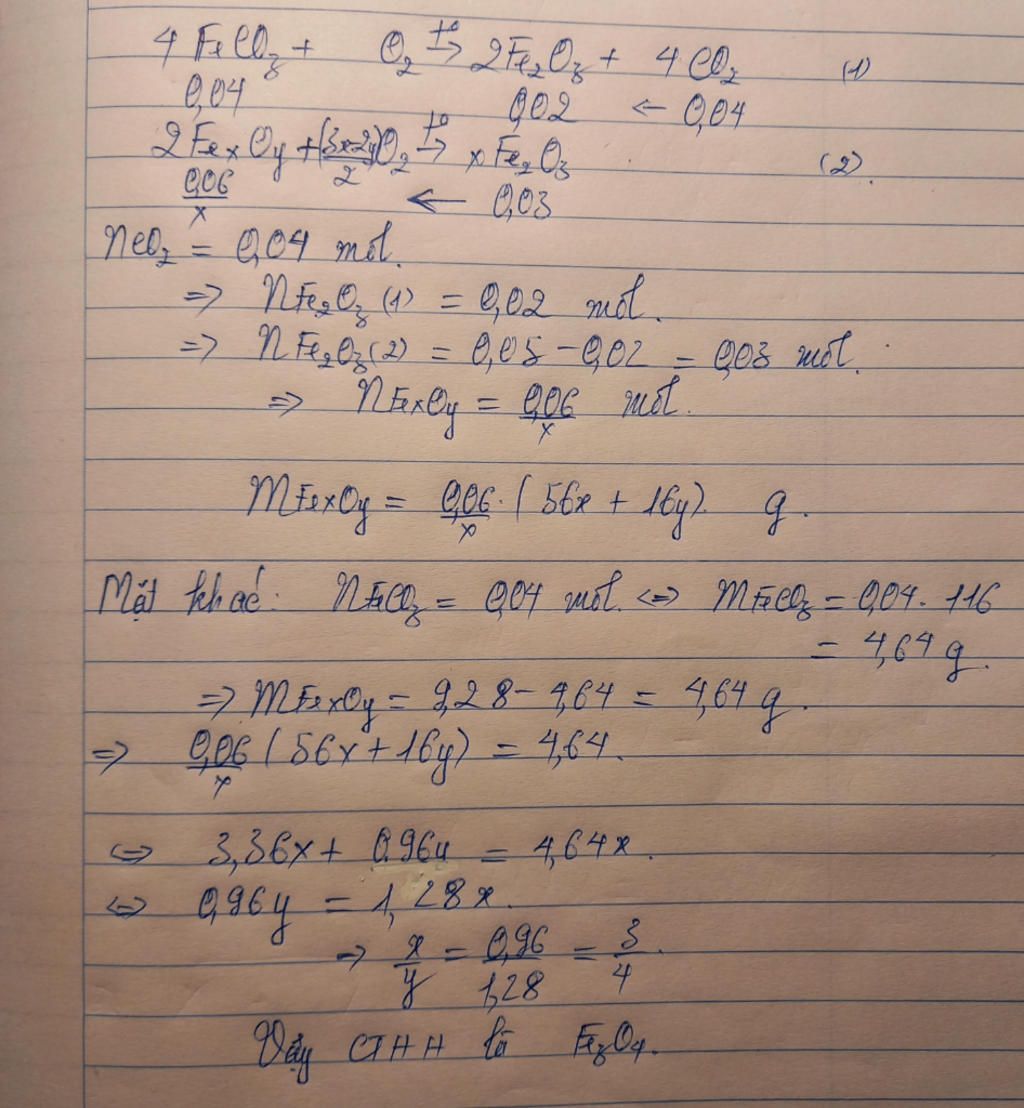 4FeCO₃ + O₂ t°→ 2Fe₂O₃ + 4CO₂ (1)
0,04 0,02 ← 0,04
2FexOy + (3x-2y)/2 O₂ t°→ xFe₂O₃ (2).
0,06/x ← 0,03
nCO₂ = 0,04 mol.
=> nFe₂O₃ (1) = 0,02 mol.
=> nFe₂O₃ (2) = 0,05 - 0,02 = 0,03 mol.
=> nFexOy = 0,06/x mol.
mFexOy = 0,06/x · (56x + 16y) g.
Mặt khác: nFeCO₃ = 0,04 mol. <=> mFeCO₃ = 0,04 . 116
= 4,64 g.
=> mFexOy = 9,28 - 4,64 = 4,64 g.
=> 0,06/x (56x + 16y) = 4,64.
<=> 3,36x + 0,96y = 4,64x.
<=> 0,96y = 1,28x.
=> x/y = 0,96/1,28 = 3/4.
Vậy CTHH là Fe₃O₄.